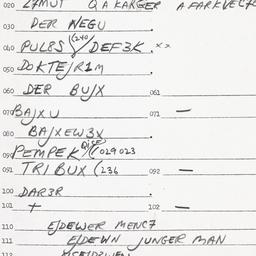 020 L7MUT Q A KARGER A FARKVEC7E
030 DER NEGU
040 PUL8S (240) / DEF3K . xx
050 DOKTEJR1M
060 DER BUJX 061
070 BAJXU 071 —
080 BAJXEW3X
090 PEMPEK (029 023
091 TRIBUX (236 092 —
100 DAR3R
101 + 102 —
110 EJDEWER MENC7
111 EJDEWN JUNGER MAN
112